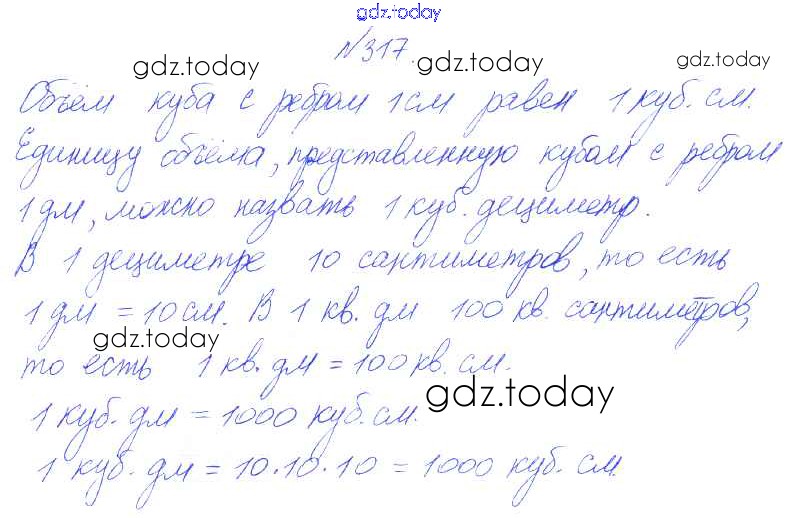 gdz.today
№317.
gdz.today gdz.today gdz.today
Объём куба с ребром 1 см равен 1 куб. см.
Единицу объёма, представленную кубом с ребром
1 дм, можно назвать 1 куб. дециметр.
В 1 дециметре 10 сантиметров, то есть
1 дм = 10 см. В 1 кв. дм 100 кв. сантиметров,
gdz.today
то есть 1 кв. дм = 100 кв. см.
gdz.today
1 куб. дм = 1000 куб. см.
1 куб. дм = 10·10·10 = 1000 куб. см